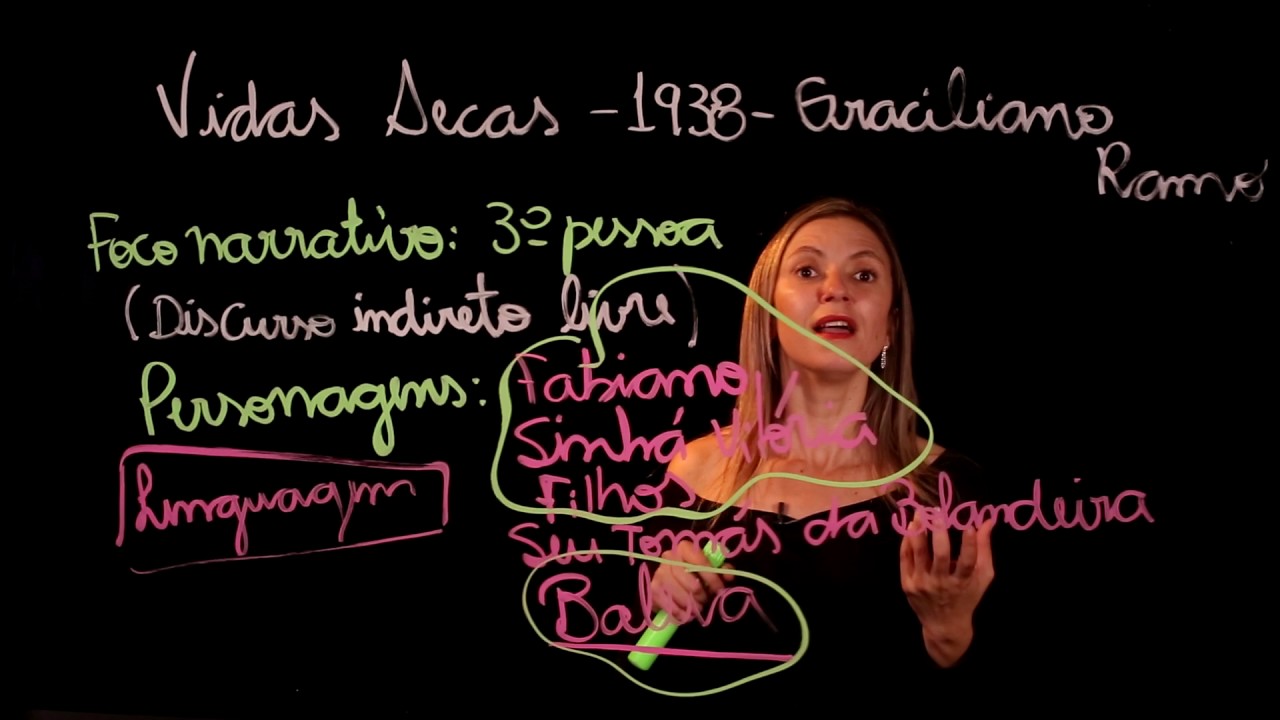 Vidas Secas - 1938 - Graciliano
Ramos
Foco narrativo: 3º pessoa
(Discurso indireto livre)
Personagens: Fabiano
Sinhá Vitória
Filhos
Linguagem
Seu Tomás da Bolandeira
Baleia